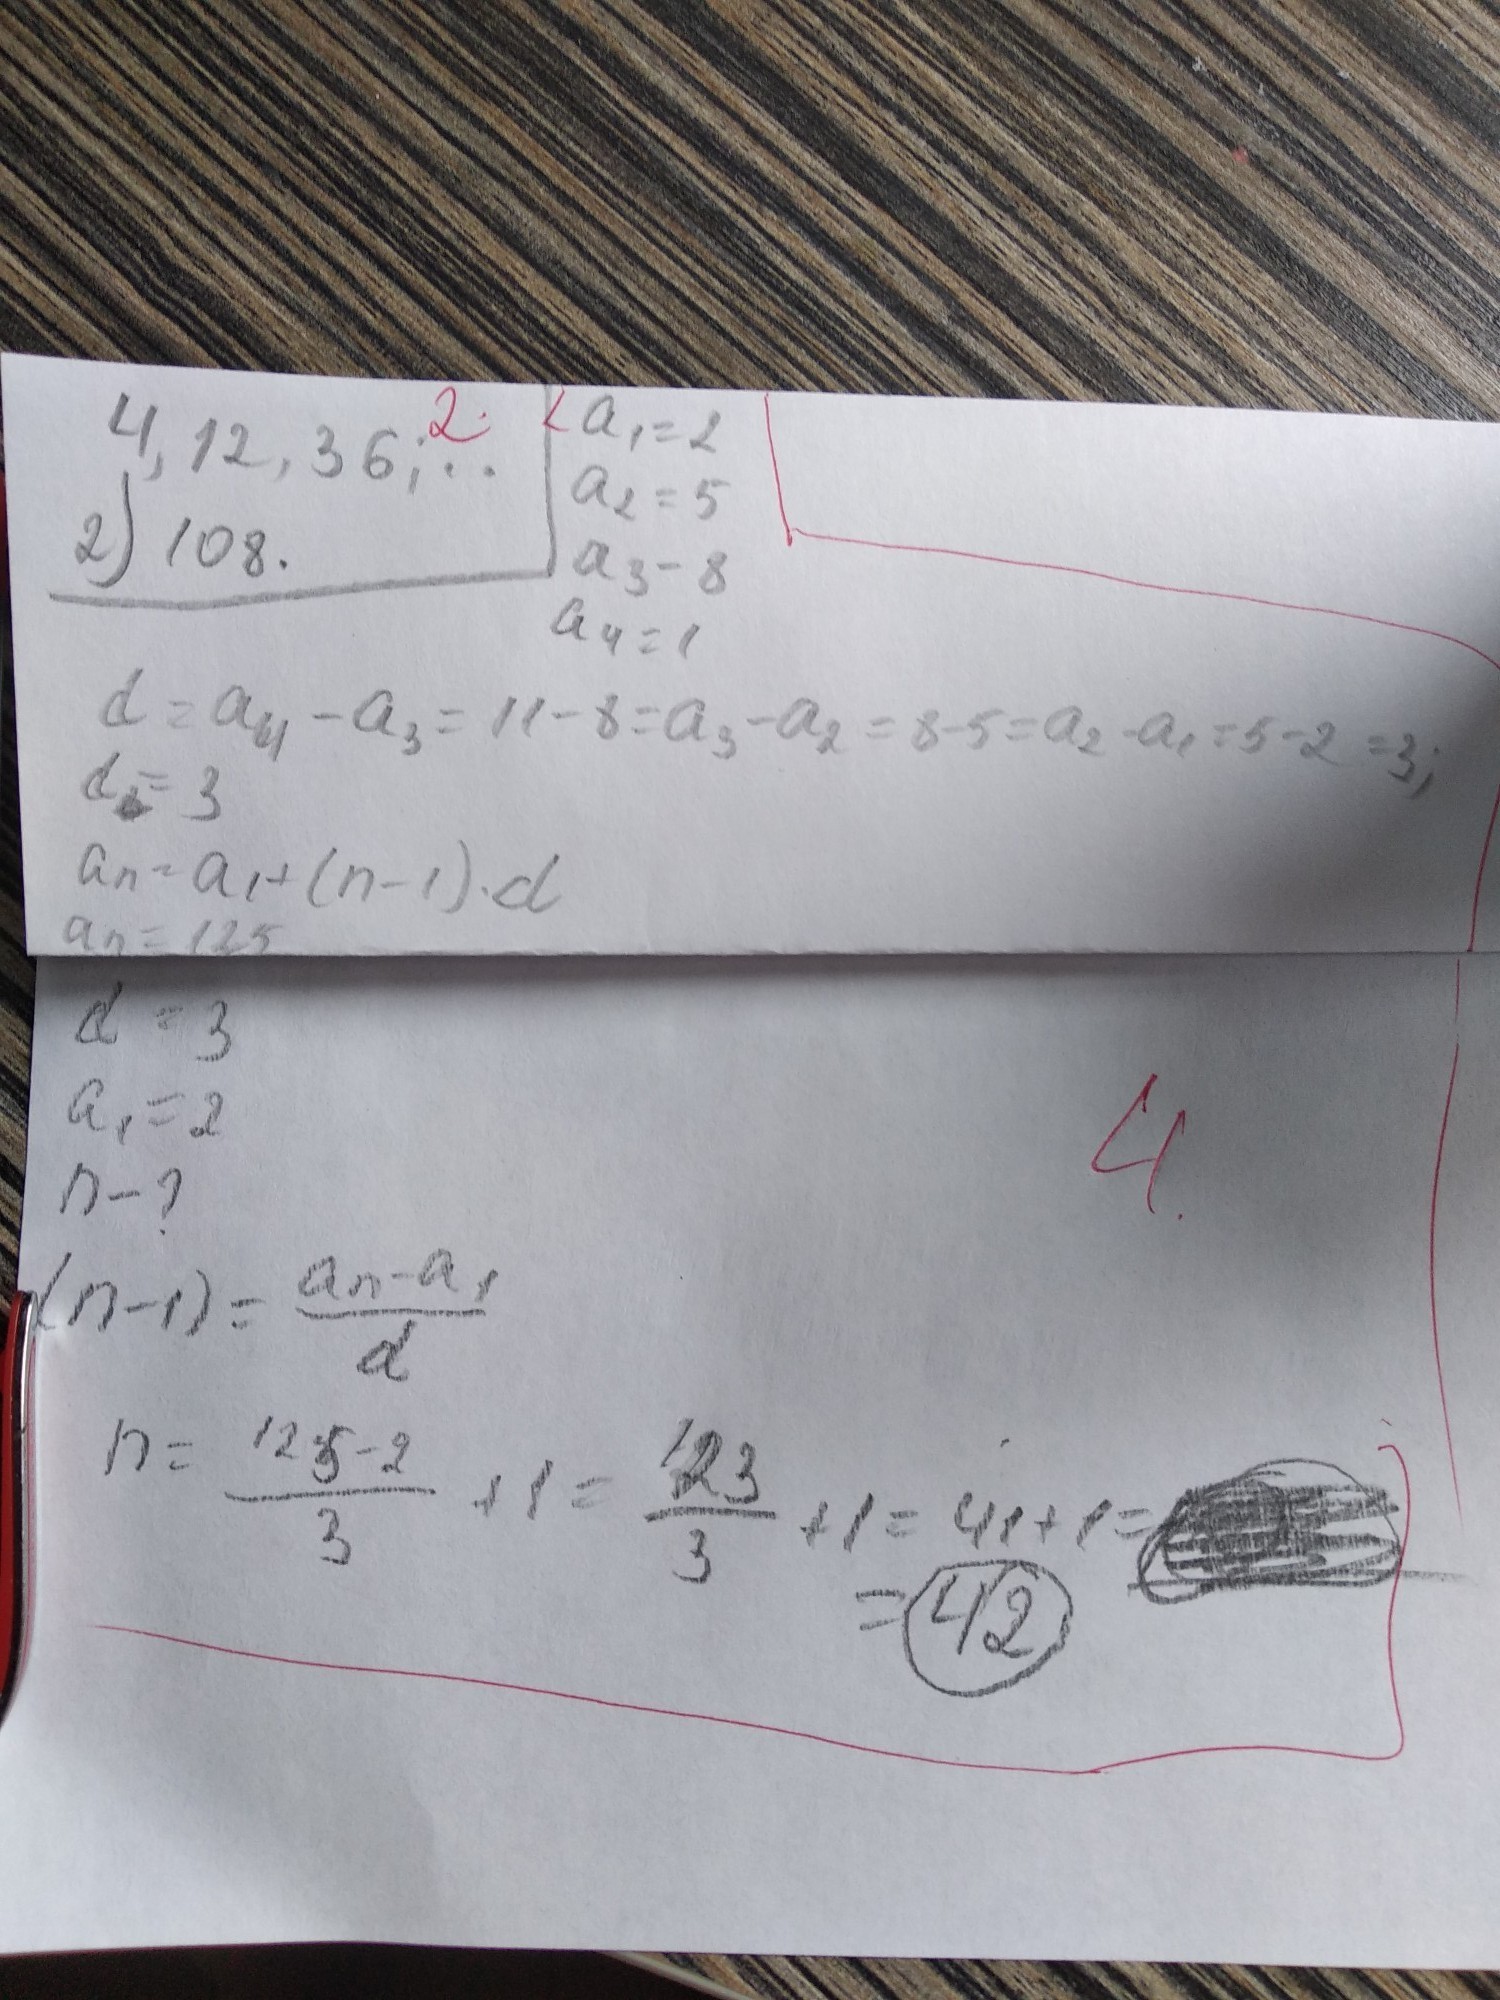 4, 12, 36, ...
2) 108.
2.
a₁ = 2
a₂ = 5
a₃ - 8
a₄ = 1
d = a₄ - a₃ = 11 - 8 = a₃ - a₂ = 8 - 5 = a₂ - a₁ = 5 - 2 = 3;
d = 3
aₙ = a₁ + (n - 1) · d
aₙ = 125
d = 3
a₁ = 2
n - ?
4.
(n - 1) = (aₙ - a₁)/d
n = (125 - 2)/3 + 1 = 123/3 + 1 = 41 + 1 =
= 42